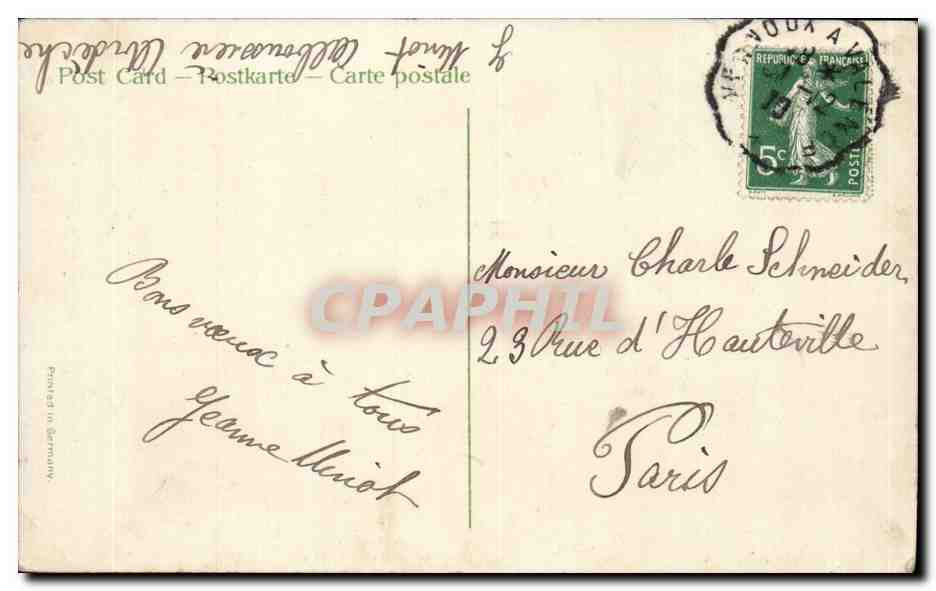 J Minot Alboussière Ardèche
Post Card – Postkarte – Carte postale
VERNOUX A VALENCE
REPUBLIQUE FRANÇAISE
5c
POSTES
Bons vœux à tous
Jeanne Minot
Monsieur Charle Schneider
23 Rue d'Hauteville
Paris
CPAPHIL
Printed in Germany.